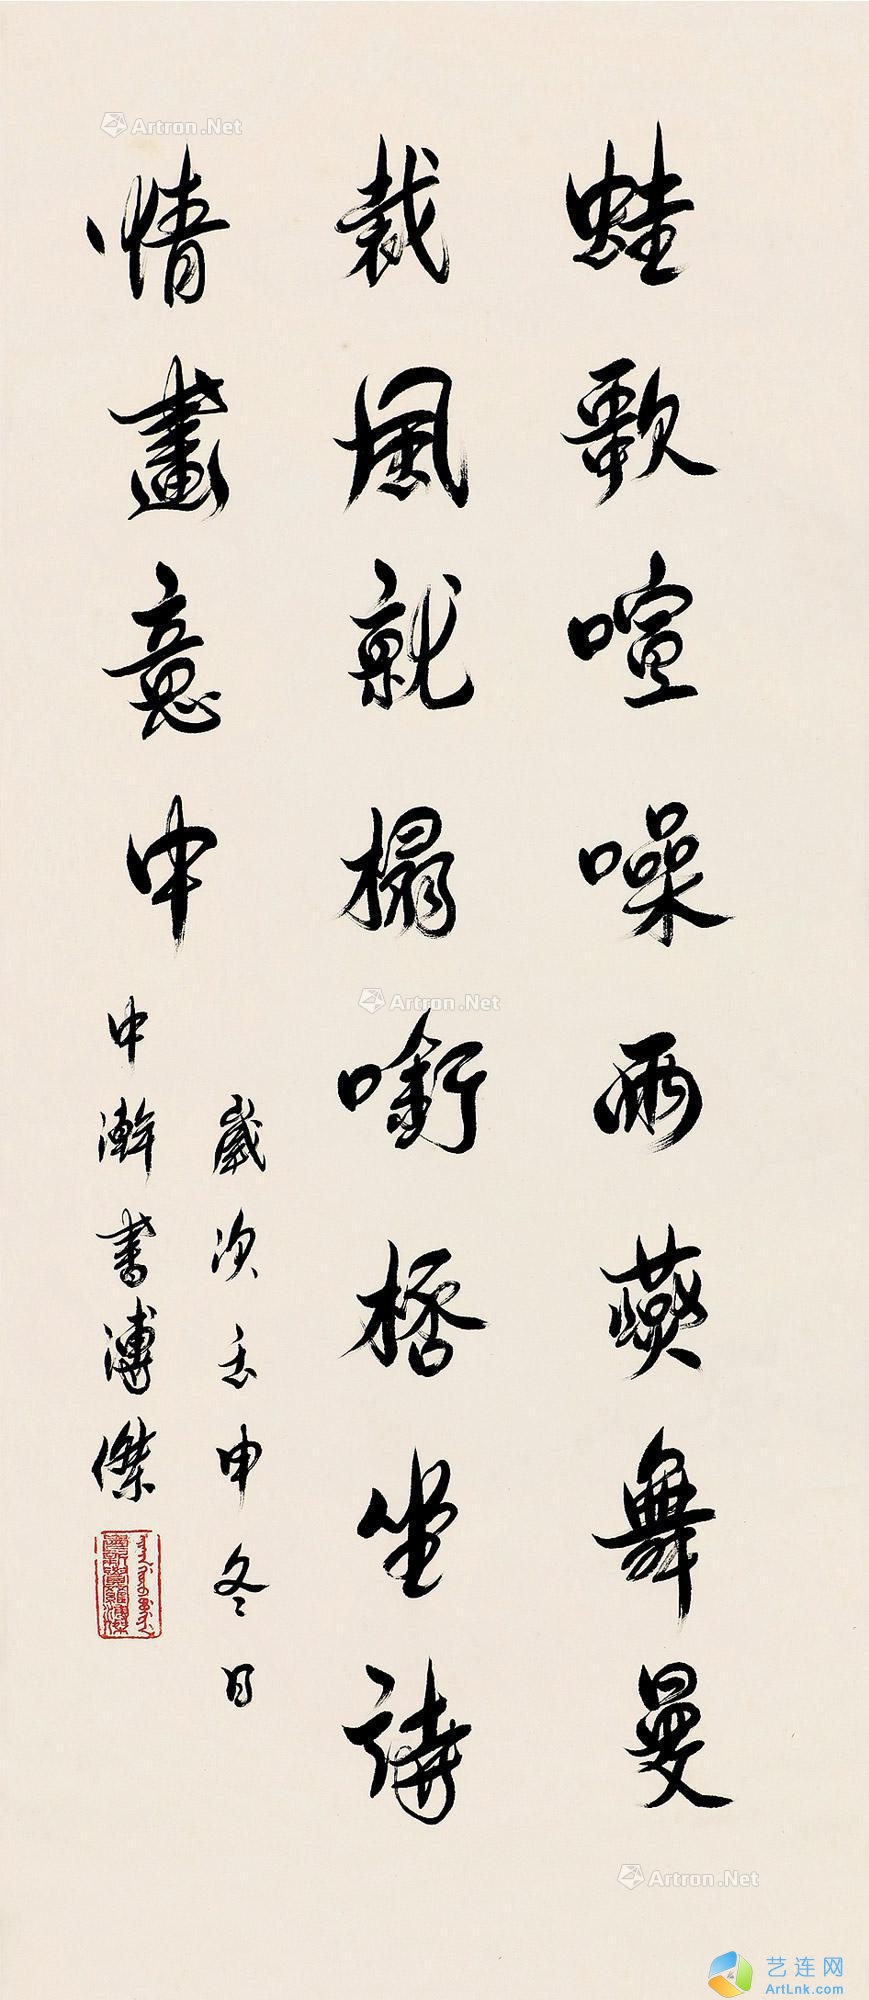 蛙歌喧噪雨燕舞曼
裁風就榻銜桮坐詩
情畫意中
歲次壬申冬日
中澣書溥傑
Artron.Net
Artron.Net
Artron.Net
艺连网
ArtLnk.com